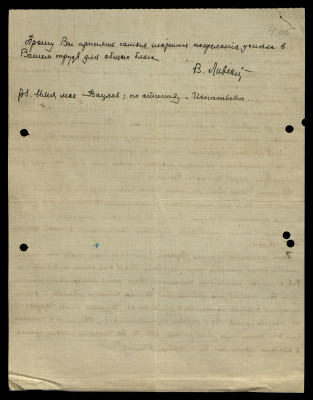 Прошу Вас принять самыя искренния пожелания успеха в
Вашем труде для общаго блага
В. Ливский
PS. Имя мое – Вацлов, по отчеству – Игнатьевич.